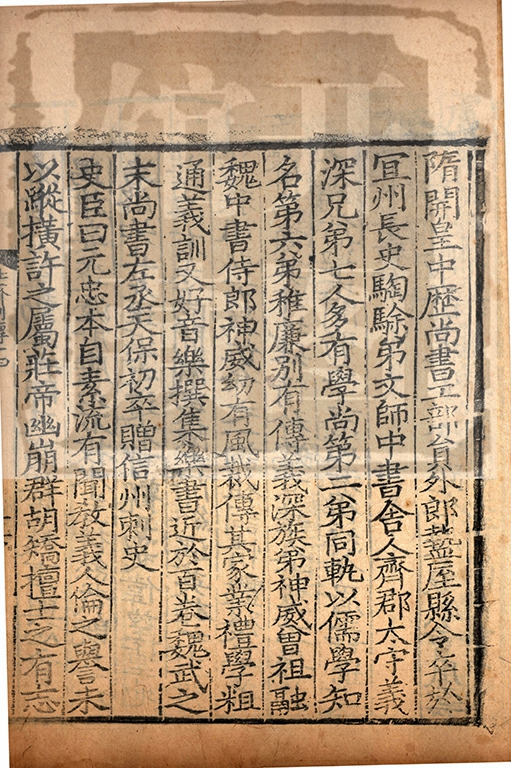 隋開皇中歷尚書工部員外郎盩厔縣令卒於
冝州長史騊駼弟文師中書舍人齊郡太守義
深兄弟七人多有學尚第二弟同軌以儒學知
名第六弟稚廉別有傳義深族弟神威曾祖融
魏中書侍郎神威幼有風裁傳其家業禮學粗
通義訓又好音樂撰集樂書近於百卷魏武之
末尚書左丞天保初卒贈信州刺史
史臣曰元忠本自素流有聞教義人倫之譽未
以蹤撗許之屬莊帝幽崩群胡矯擅士之有志